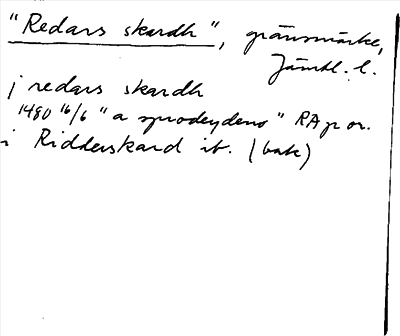 "Redars skardh", gränsmärke,
Jämtl. l.
j redars skardh
1480 16/6 "a sprodeydens" RAp or.
i Ridderskard ib. (bak)